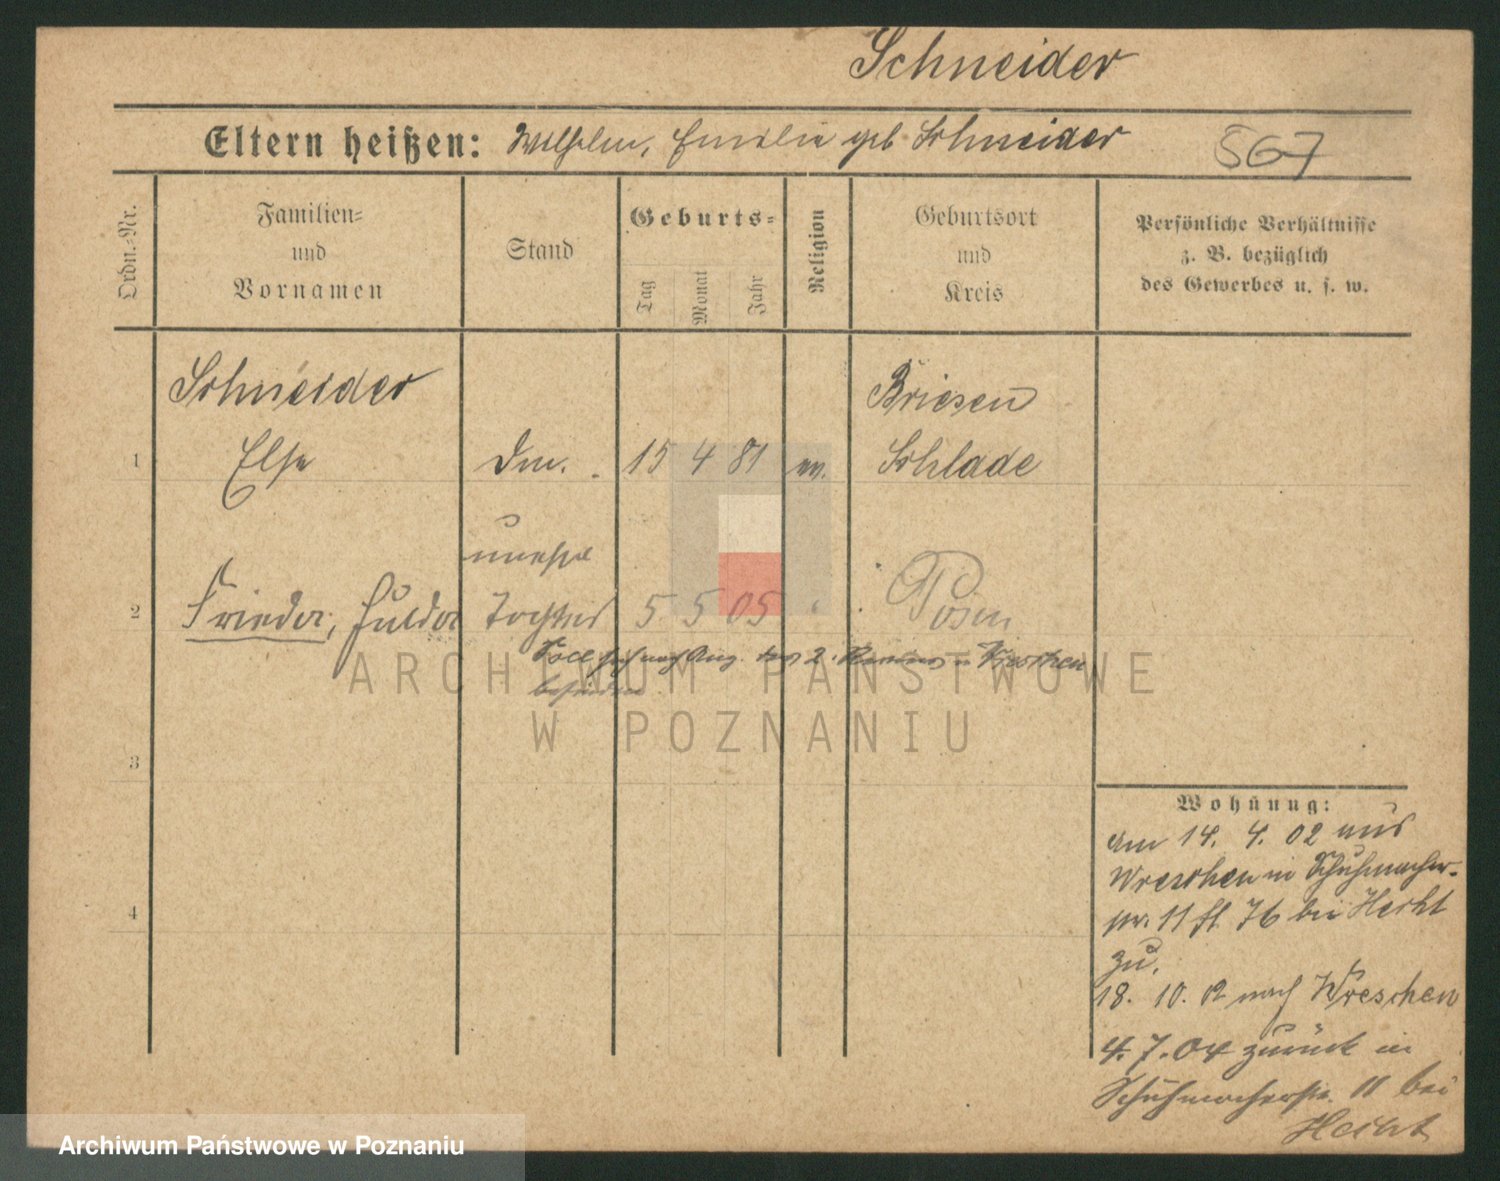 Schneider
Eltern heißen: Wilhelm, Emilie geb Schneider 567
Ordn.-Nr.
Familien=
und
Vornamen
Stand
Geburts=
Tag
Monat
Jahr
Religion
Geburtsort
und
Kreis
Persönliche Verhältnisse
z. B. bezüglich
des Gewerbes u. s. w.
Schneider
Briesen
1 Else 15 4 81 ev. Schlade
unehel
2 Tochter 5 5 05 Posen
Soll sich nach Ang. des 2. Reviers in Wreschen
befinden
ARCHIWUM PAŃSTWOWE
W POZNANIU
3
4
Wohnung:
am 14. 4. 02 aus
Wreschen in Schuhmacher-
str. 11 76 bei Hecht
zu.
18. 10. 02 nach Wreschen
4. 7. 04 zurück in
Schuhmacherstr. 11 bei
Hecht
Archiwum Państwowe w Poznaniu